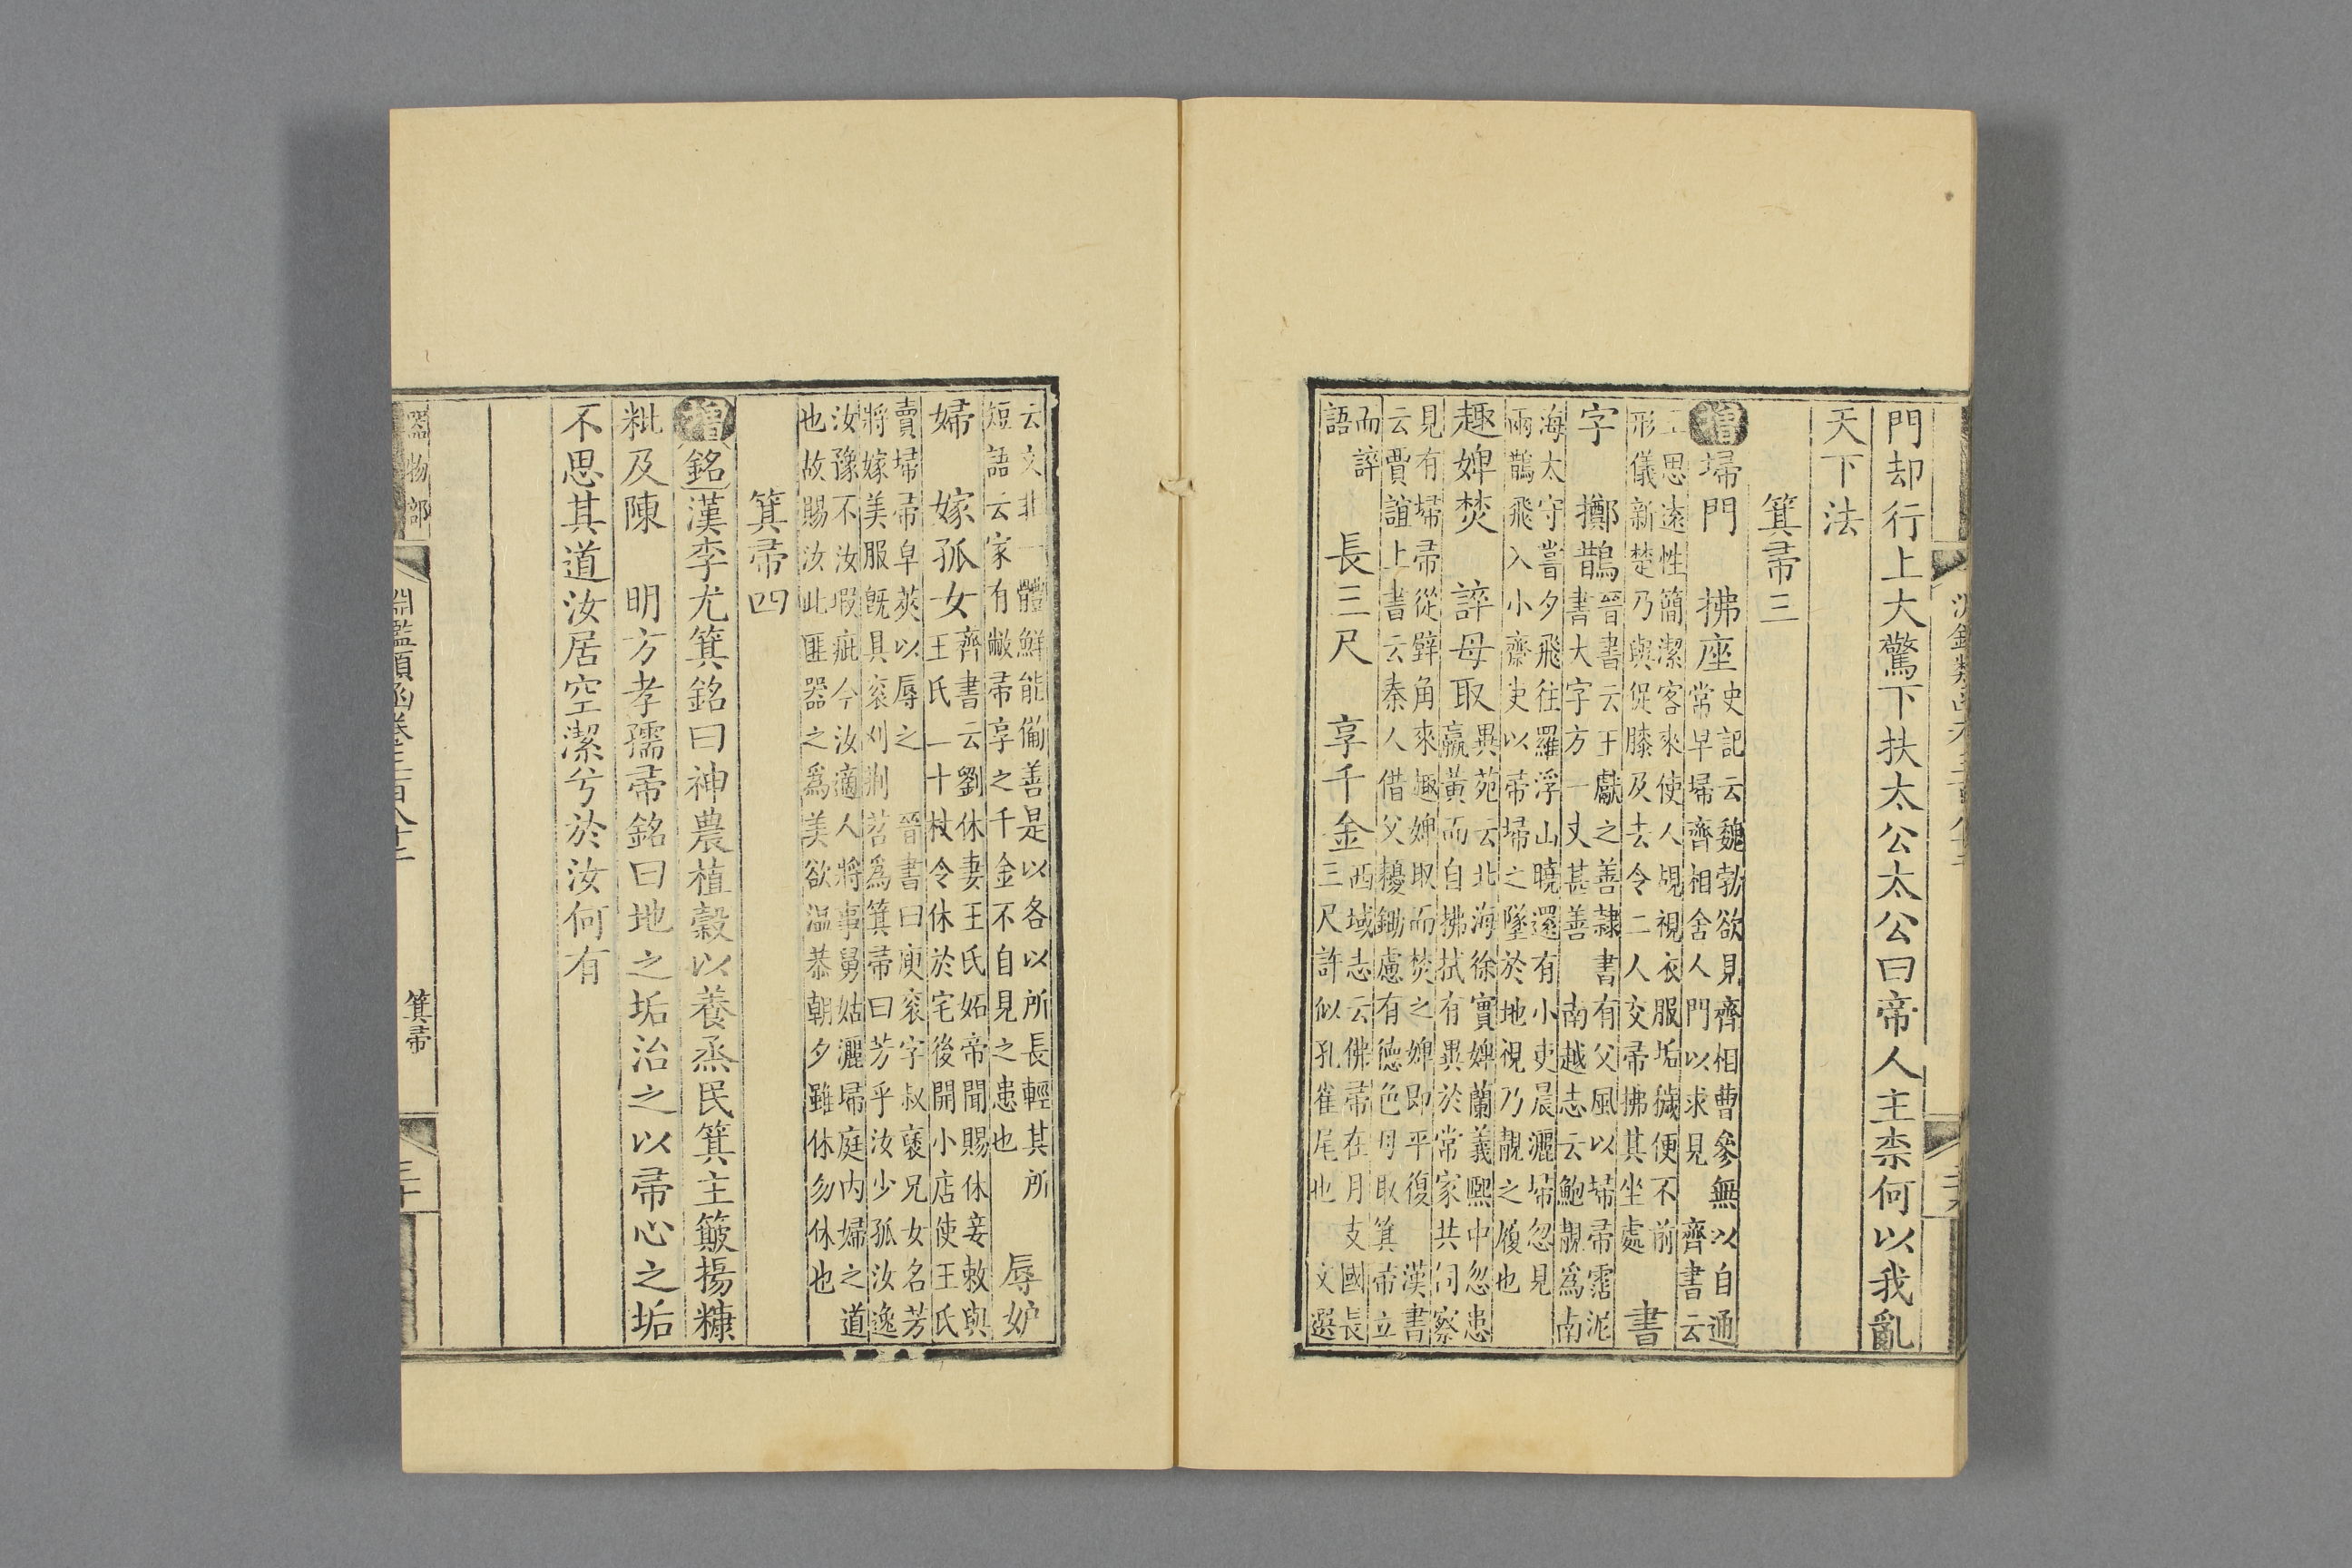 門却行上大驚下扶太公太公曰帝人主柰何以我亂
天下法
箕帚三
增埽門 拂座 史記云魏勃欲見齊相曹參無以自通
常早埽齊相舍人門以求見 齊書云
王思遠性簡潔客來使人覘視衣服垢穢便不前
形儀新楚乃與促膝及去令二人交帚拂其坐處 書
字 擲鵲 晉書云王獻之善隸書有父風以埽帚霑泥
書大字方一丈甚善 南越志云鮑靚爲南
海太守嘗夕飛往羅浮山曉還有小吏晨灑埽忽見
兩鵲飛入小齋吏以帚埽之墜於地視乃靚之履也
趣婢焚 誶母取 異苑云北海徐實婢蘭義熙中忽患
羸黃而自拂拭有異於常家共伺察
見有埽帚從壁角來趣婢取而焚之婢即平復 漢書
云賈誼上書云秦人借父耰鋤慮有德色母取箕帚立
而誶
語 長三尺 享千金 西域志云佛帚在月支國長
三尺許似孔雀尾也 文選
云文非一體鮮能備善是以各以所長輕其所
短語云家有敝帚享之千金不自見之患也 辱妒
婦 嫁孤女 齊書云劉休妻王氏妬帝聞賜休妾敕與
王氏二十杖令休於宅後開小店使王氏
賣埽帚皁莢以辱之 晉書曰庾袞字叔褒兄女名芳
將嫁美服旣具袞刈荆苕爲箕帚曰芳乎汝少孤汝逸
汝豫不汝瑕疵今汝適人將事舅姑灑埽庭內婦之道
也故賜汝此匪器之爲美欲溫恭朝夕雖休勿休也
箕帚四
增銘漢李尤箕銘曰神農植穀以養烝民箕主簸揚糠
粃及陳 明方孝孺帚銘曰地之垢治之以帚心之垢
不思其道汝居空潔兮於汝何有
器物部
淵鑑類函卷三百八十二
箕帚